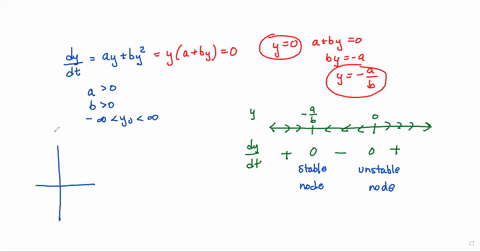 dy/dt = ay + by² = y(a + by) = 0
y = 0
a + by = 0
by = -a
y = -a/b
a > 0
b > 0
-∞ < y₀ < ∞
y -a/b 0
dy/dt + 0 - 0 +
stable node unstable node